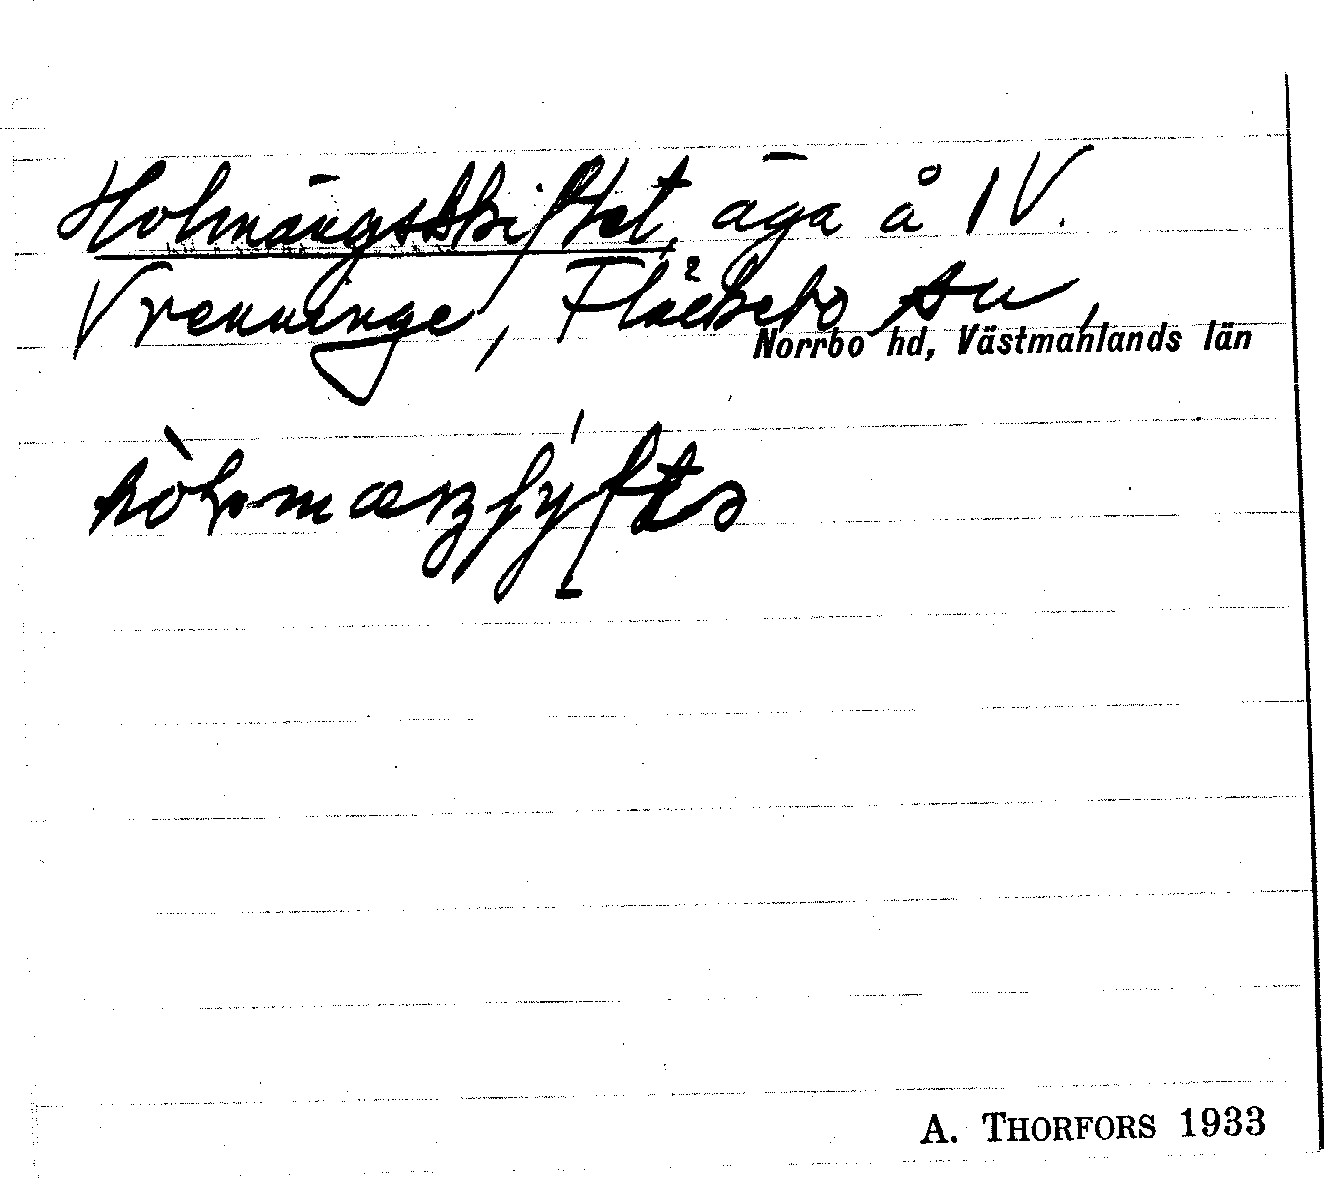 Holmängsskiftet, äga å IV.
Vrenninge, Fläckebo sn,
Norrbo hd, Västmanlands län
A. THORFORS 1933